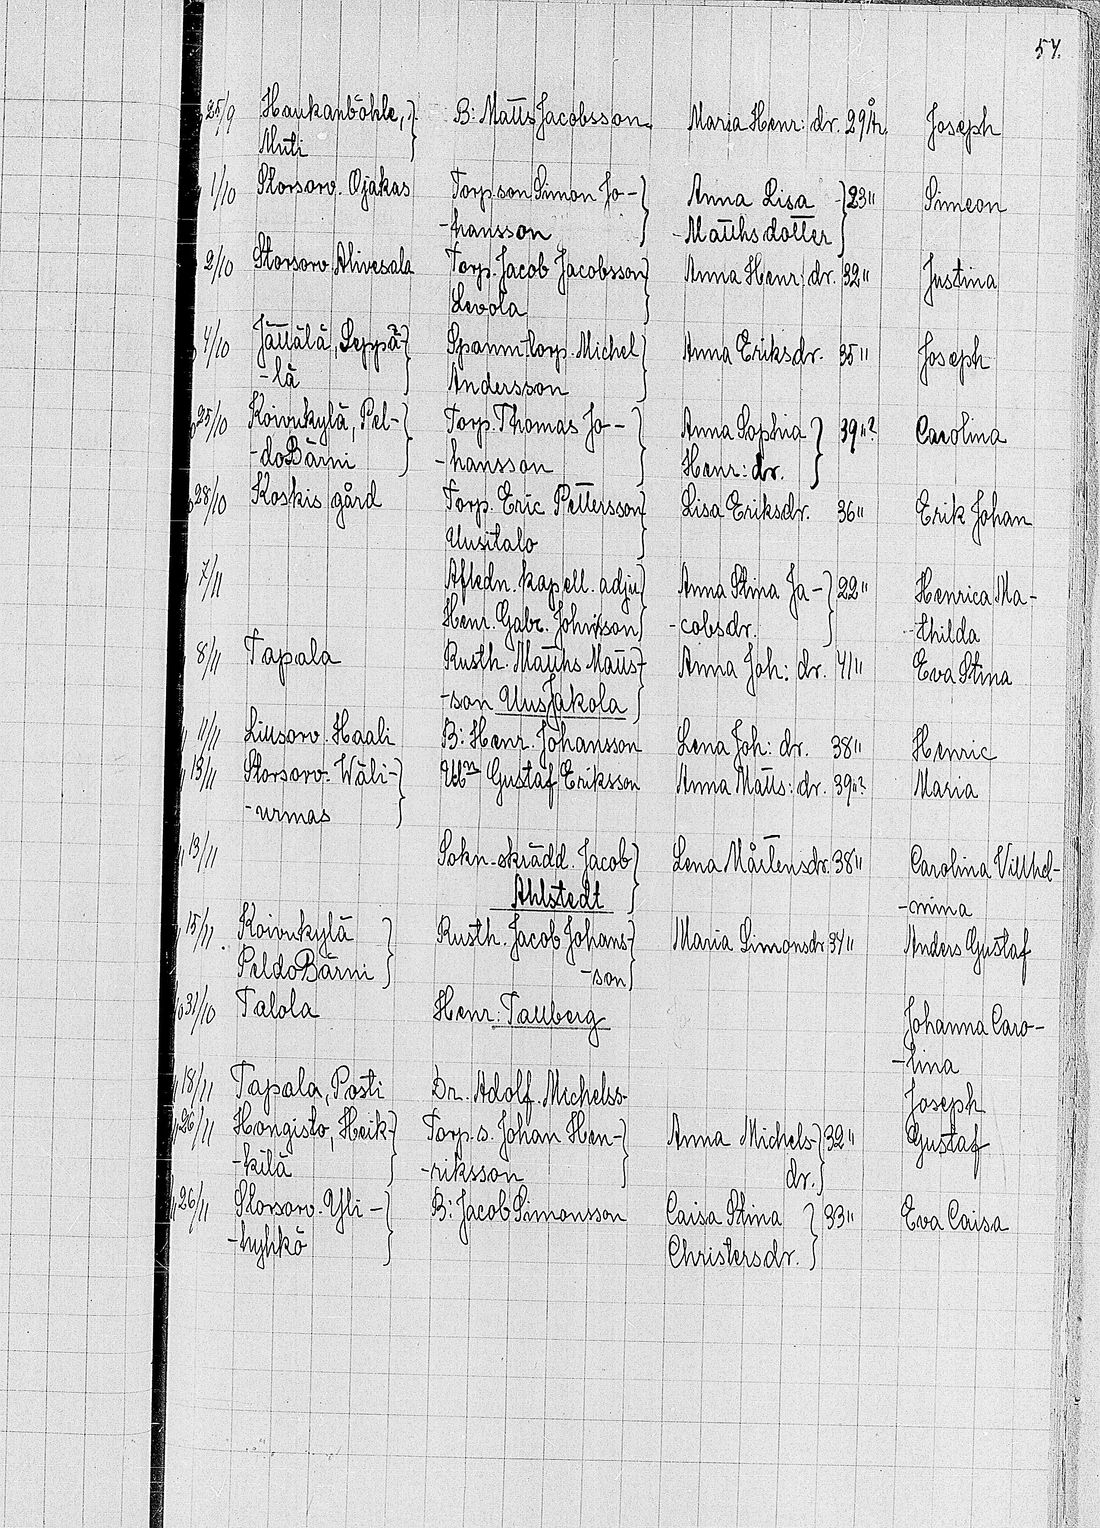 57.
25/9 Haukanböhle, B: Matts Jacobsson Maria Henr: dr. 29 År. Joseph
Muti
1/10 Storsarv. Ojakas Torp.son Simon Jo- Anna Lisa 23" Simeon
-hansson -Matthsdotter
2/10 Storsarv. Alivesala Torp. Jacob Jacobsson Anna Henr: dr. 32" Justina
Levola
4/10 Jättälä, Seppä- Spanm.torp. Michel Anna Eriksdr. 35" Joseph
-lä Andersson
25/10 Koivukylä, Pel- Torp. Thomas Jo- Anna Sophia 39"? Carolina
-doBärni -hansson Henr: dr.
28/10 Koskis gård Torp. Eric Pettersson Lisa Eriksdr. 36" Erik Johan
Uusitalo
7/11 Afledn. kapell. adju Anna Stina Ja- 22" Henrica Ma-
Henr. Gabr. Johnsson -cobsdr. -thilda
8/11 Tapala Rusth. Matths Matts- Anna Joh: dr. 41" Eva Stina
-son UusJakola
11/11 Liusarv. Haali B: Henr. Johansson Lena Joh: dr. 38" Henric
13/11 Storsarv. Wäli- Gustaf Eriksson Anna Matts: dr. 39"? Maria
-urmas
13/11 Sokn-skrädd. Jacob Lena Mårtensdr. 38" Carolina Vilhel-
Ahlstedt -mina
15/11. Koivukylä Rusth. Jacob Johans- Maria Simonsdr 34" Anders Gustaf
PeldoBärni -son
31/10 Talola Henr: Tauberg Johanna Caro-
-lina
18/11 Tapala, Posti Dr. Adolf Michelss- Joseph
26/11 Hongisto, Heik- Torp.s. Johan Hen- Anna Michels- 32" Gustaf
-kilä -riksson dr.
26/11 Storsarv. Yli- B: Jacob Simonsson Caisa Stina 33" Eva Caisa
-hyhkö Christersdr.